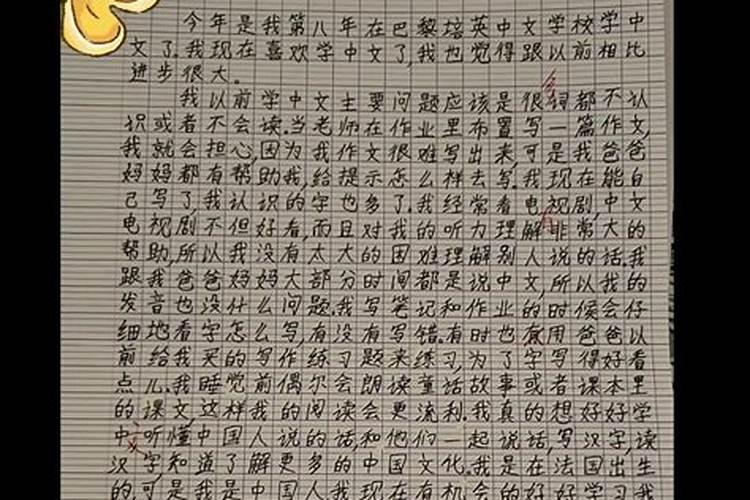 今年是我第八年在巴黎培英中文学校学中
文了.我现在喜欢学中文了,我也觉得跟以前相比
进步很大。
我以前学中文主要问题应该是很多词都不认
识或者不会读.当老师在作业里布置写一篇作文,
我就会担心,因为我作文很难写出来,可是我爸爸
妈妈都有帮助我,给提示怎么样去写.我现在能自
己写了.我认识的字也多了.我经常看电视剧,中文
电视剧不但好看,而且对我的听力理解有非常大的
帮助,所以我没有太大的困难理解别人说的话.我
跟我爸爸妈妈大部分时间都是说中文,所以我的
发音也没什么问题.我写笔记和作业的时候会仔
细地看字怎么写,有没有写错.有时也有用爸爸以
前给我买的写作练习题来练习,为了字写得好看
点儿.我睡觉前偶尔会朗读童话故事或者课本里
的课文,这样我的阅读会更流利.我真的想好好学
中文听懂中国人说的话,和他们一起说话,写汉字,读
汉字,知道了解更多的中国文化.我是在法国出生
的,可是我是中国人我现在有机会的好好学习我